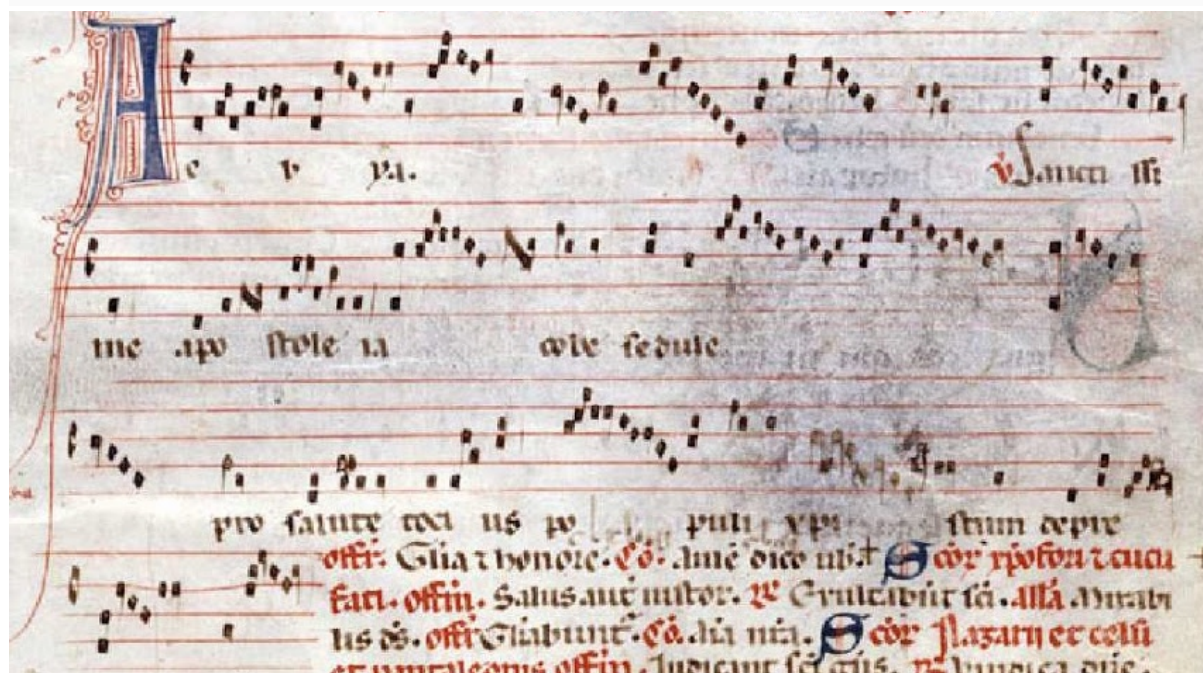 A e v ya. ℣ Sancti ssi
me apo stole ia cobe sedule
pro salute toci us po puli xpi stum depre
offr. Glia ⁊ honore. Co. Amē dico uob. Scōꝝ xpofori ⁊ cucu
fati. offm. Salus aut iustoꝝ. ℟ Exultabūt sci. allā Mirabi
lis ds. offr Gliabunt. Cō. Scōꝝ Nazarii et celsi
et pantaleonis offm. Iudicant sci